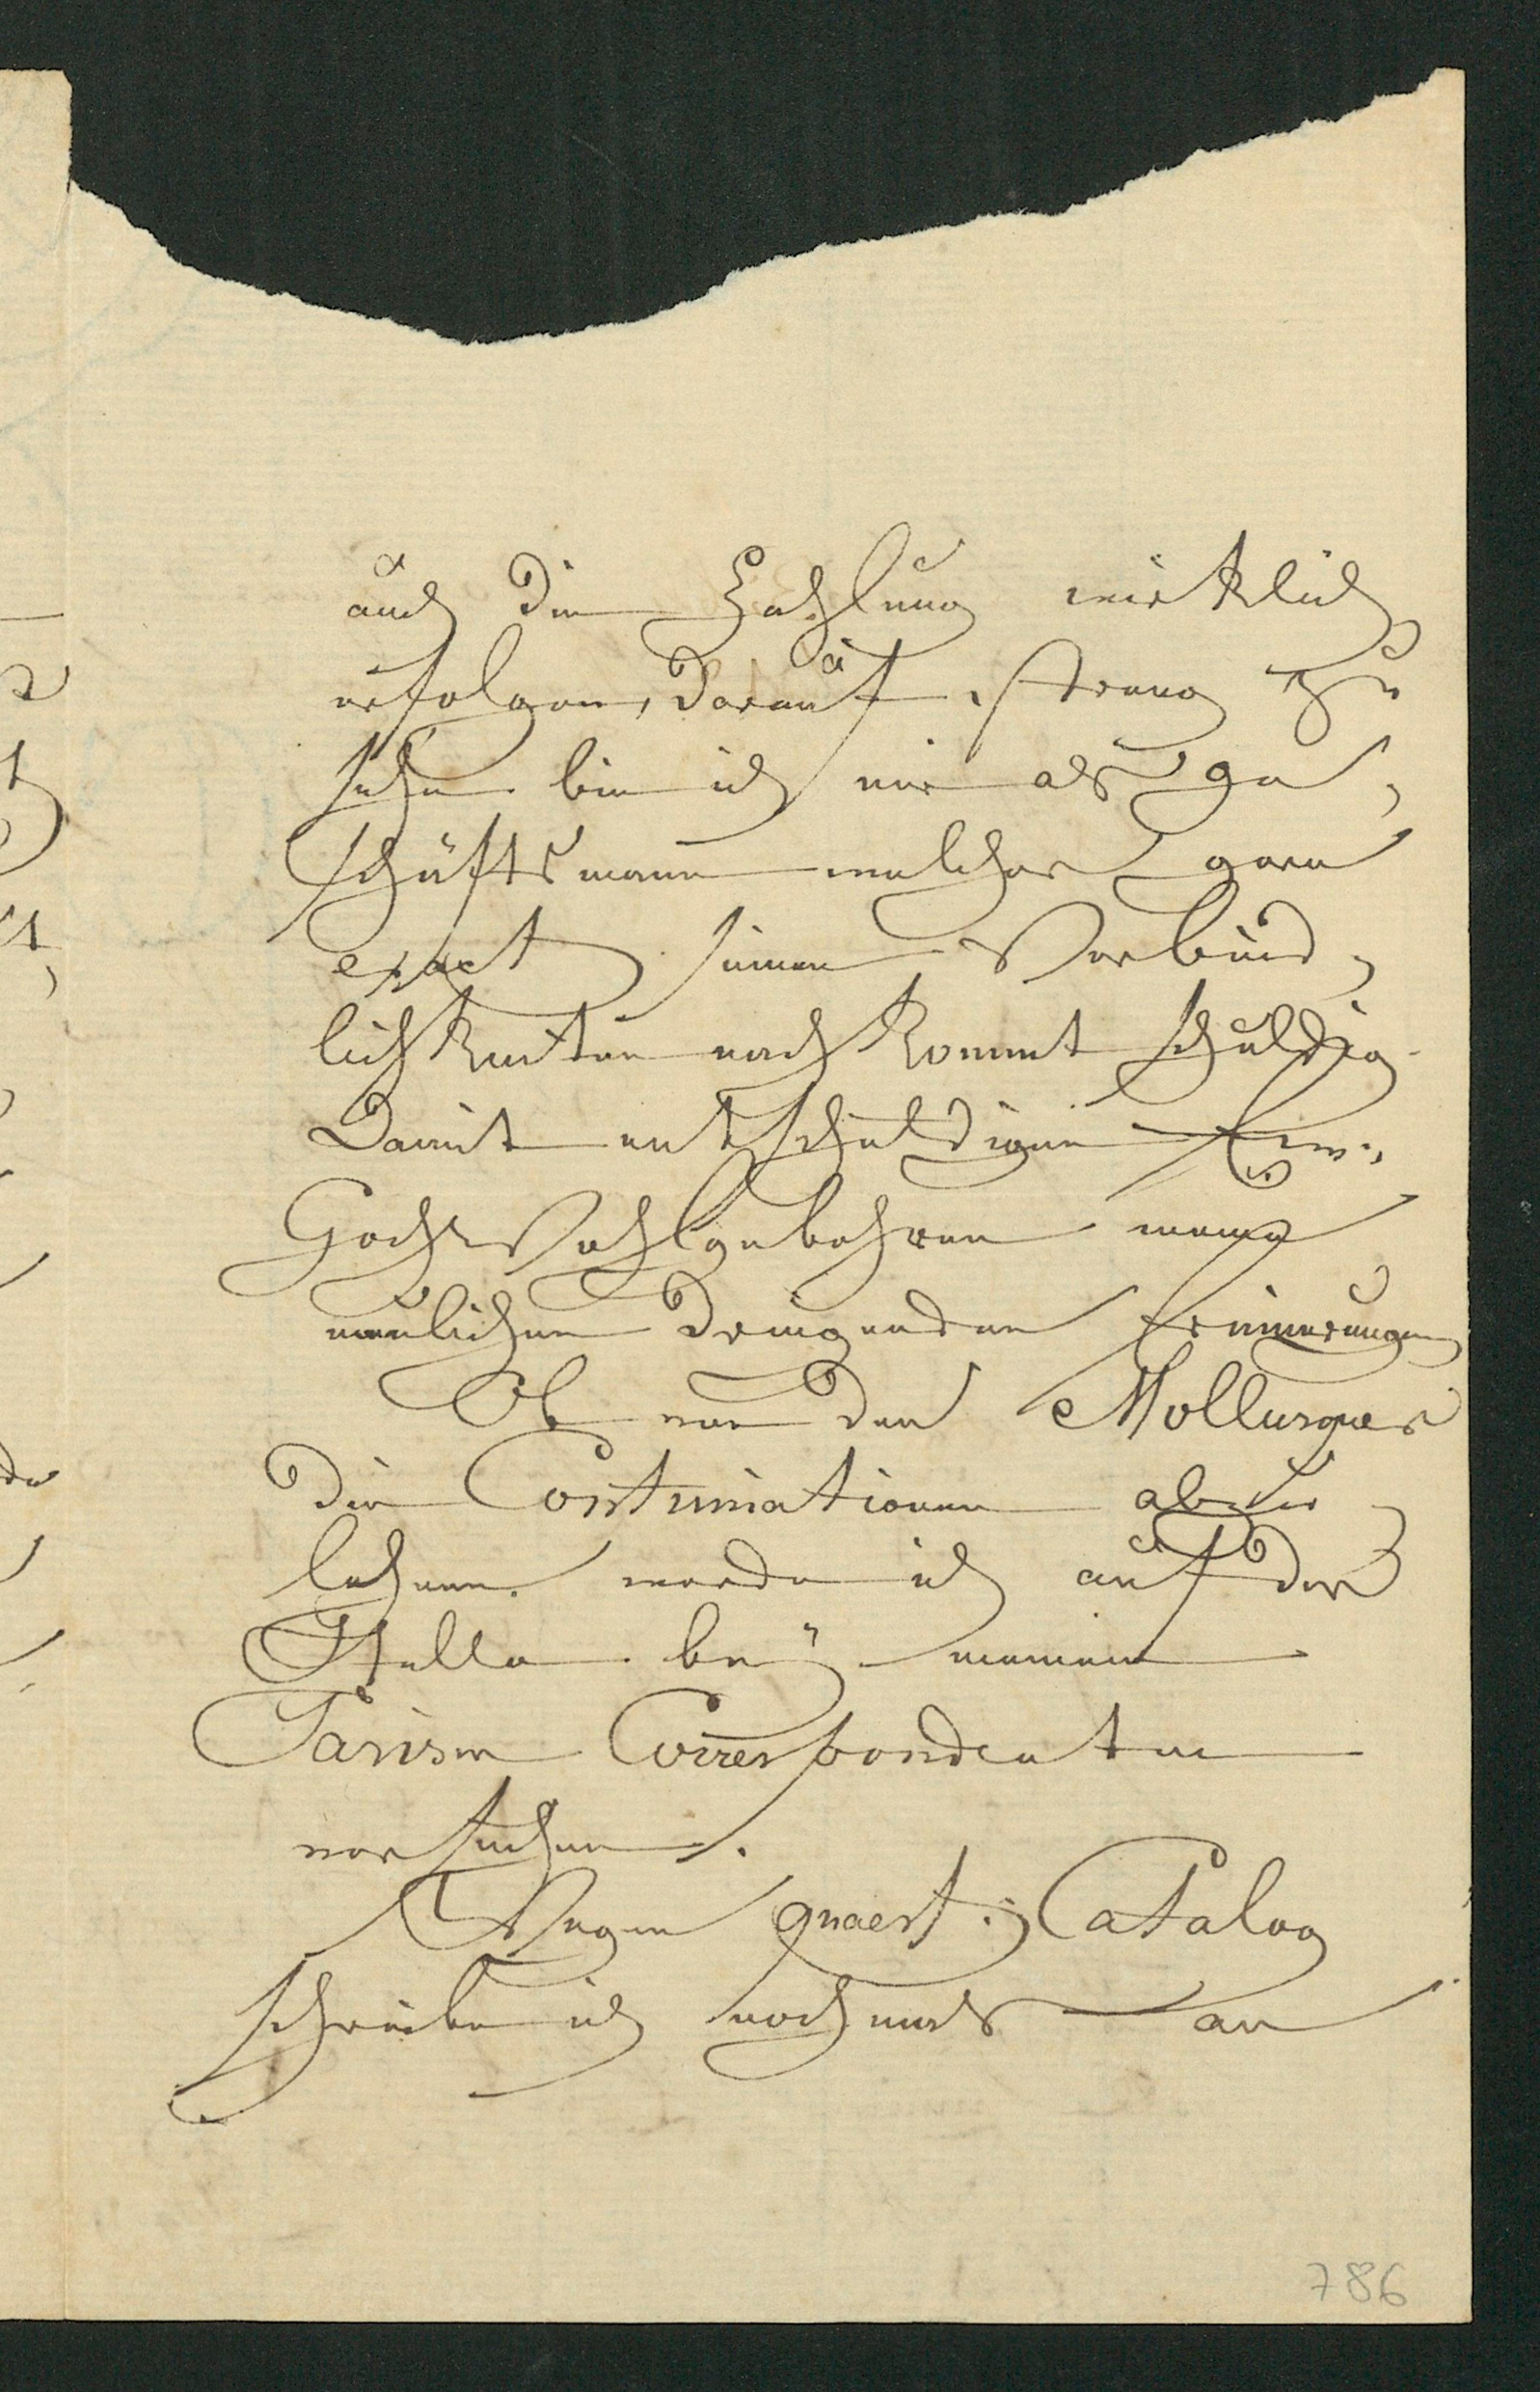 auch die Zahlung wirklich
erfolgen, darauf streng zu
sehen bin ich mir als Ge,
schäftsmann welcher gern
exact seinen Verbind,
lichkeiten nachkommt schuldig
Damit entschuldigen Ew.,
HochWohlgebohren meine
neulichen dringenden Erinnerungen
Ob von den Mollusques
die Continuationen abzu,
lehnen werde ich auf der
Stelle bey meinem
Pariser Correspondenten
versuchen.
Wegen quaest. Catalog
schreibe ich nochmals an
786